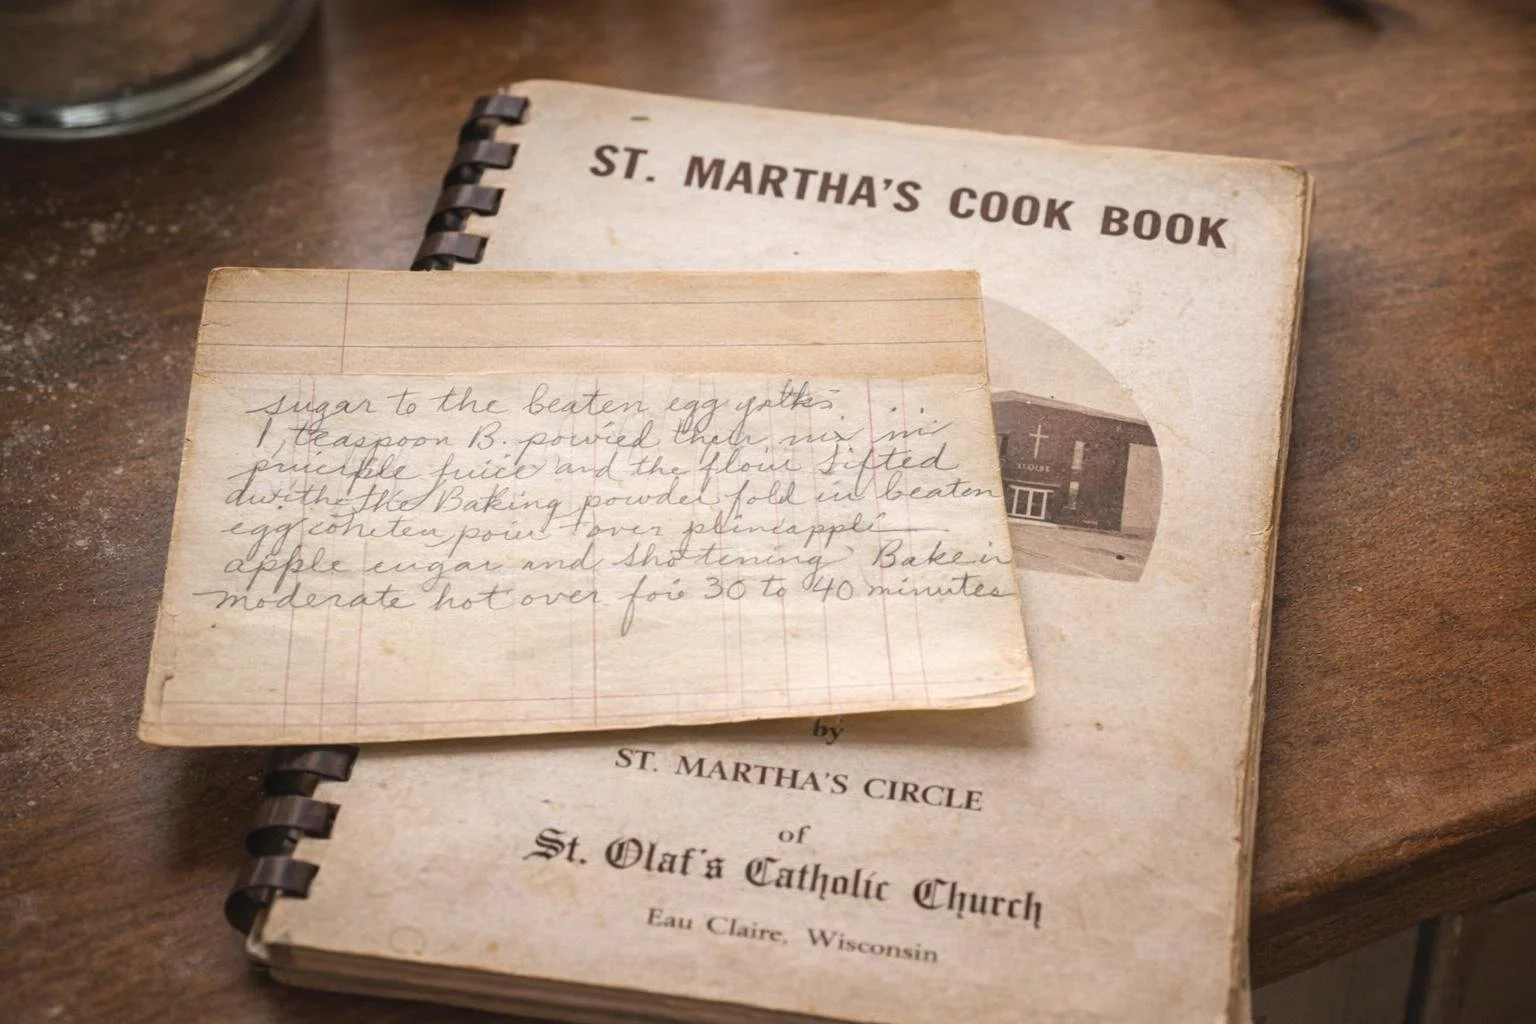 ST. MARTHA'S COOK BOOK
sugar to the beaten egg yolks
1 teaspoon B. powied then mix in
juice and the flour sifted
the Baking powder fold in beaten
egg pour over
apple eugar and shortening Bake in
moderate hot over for 30 to 40 minutes
ST. OLAF
by
ST. MARTHA'S CIRCLE
of
St. Olaf's Catholic Church
Eau Claire, Wisconsin